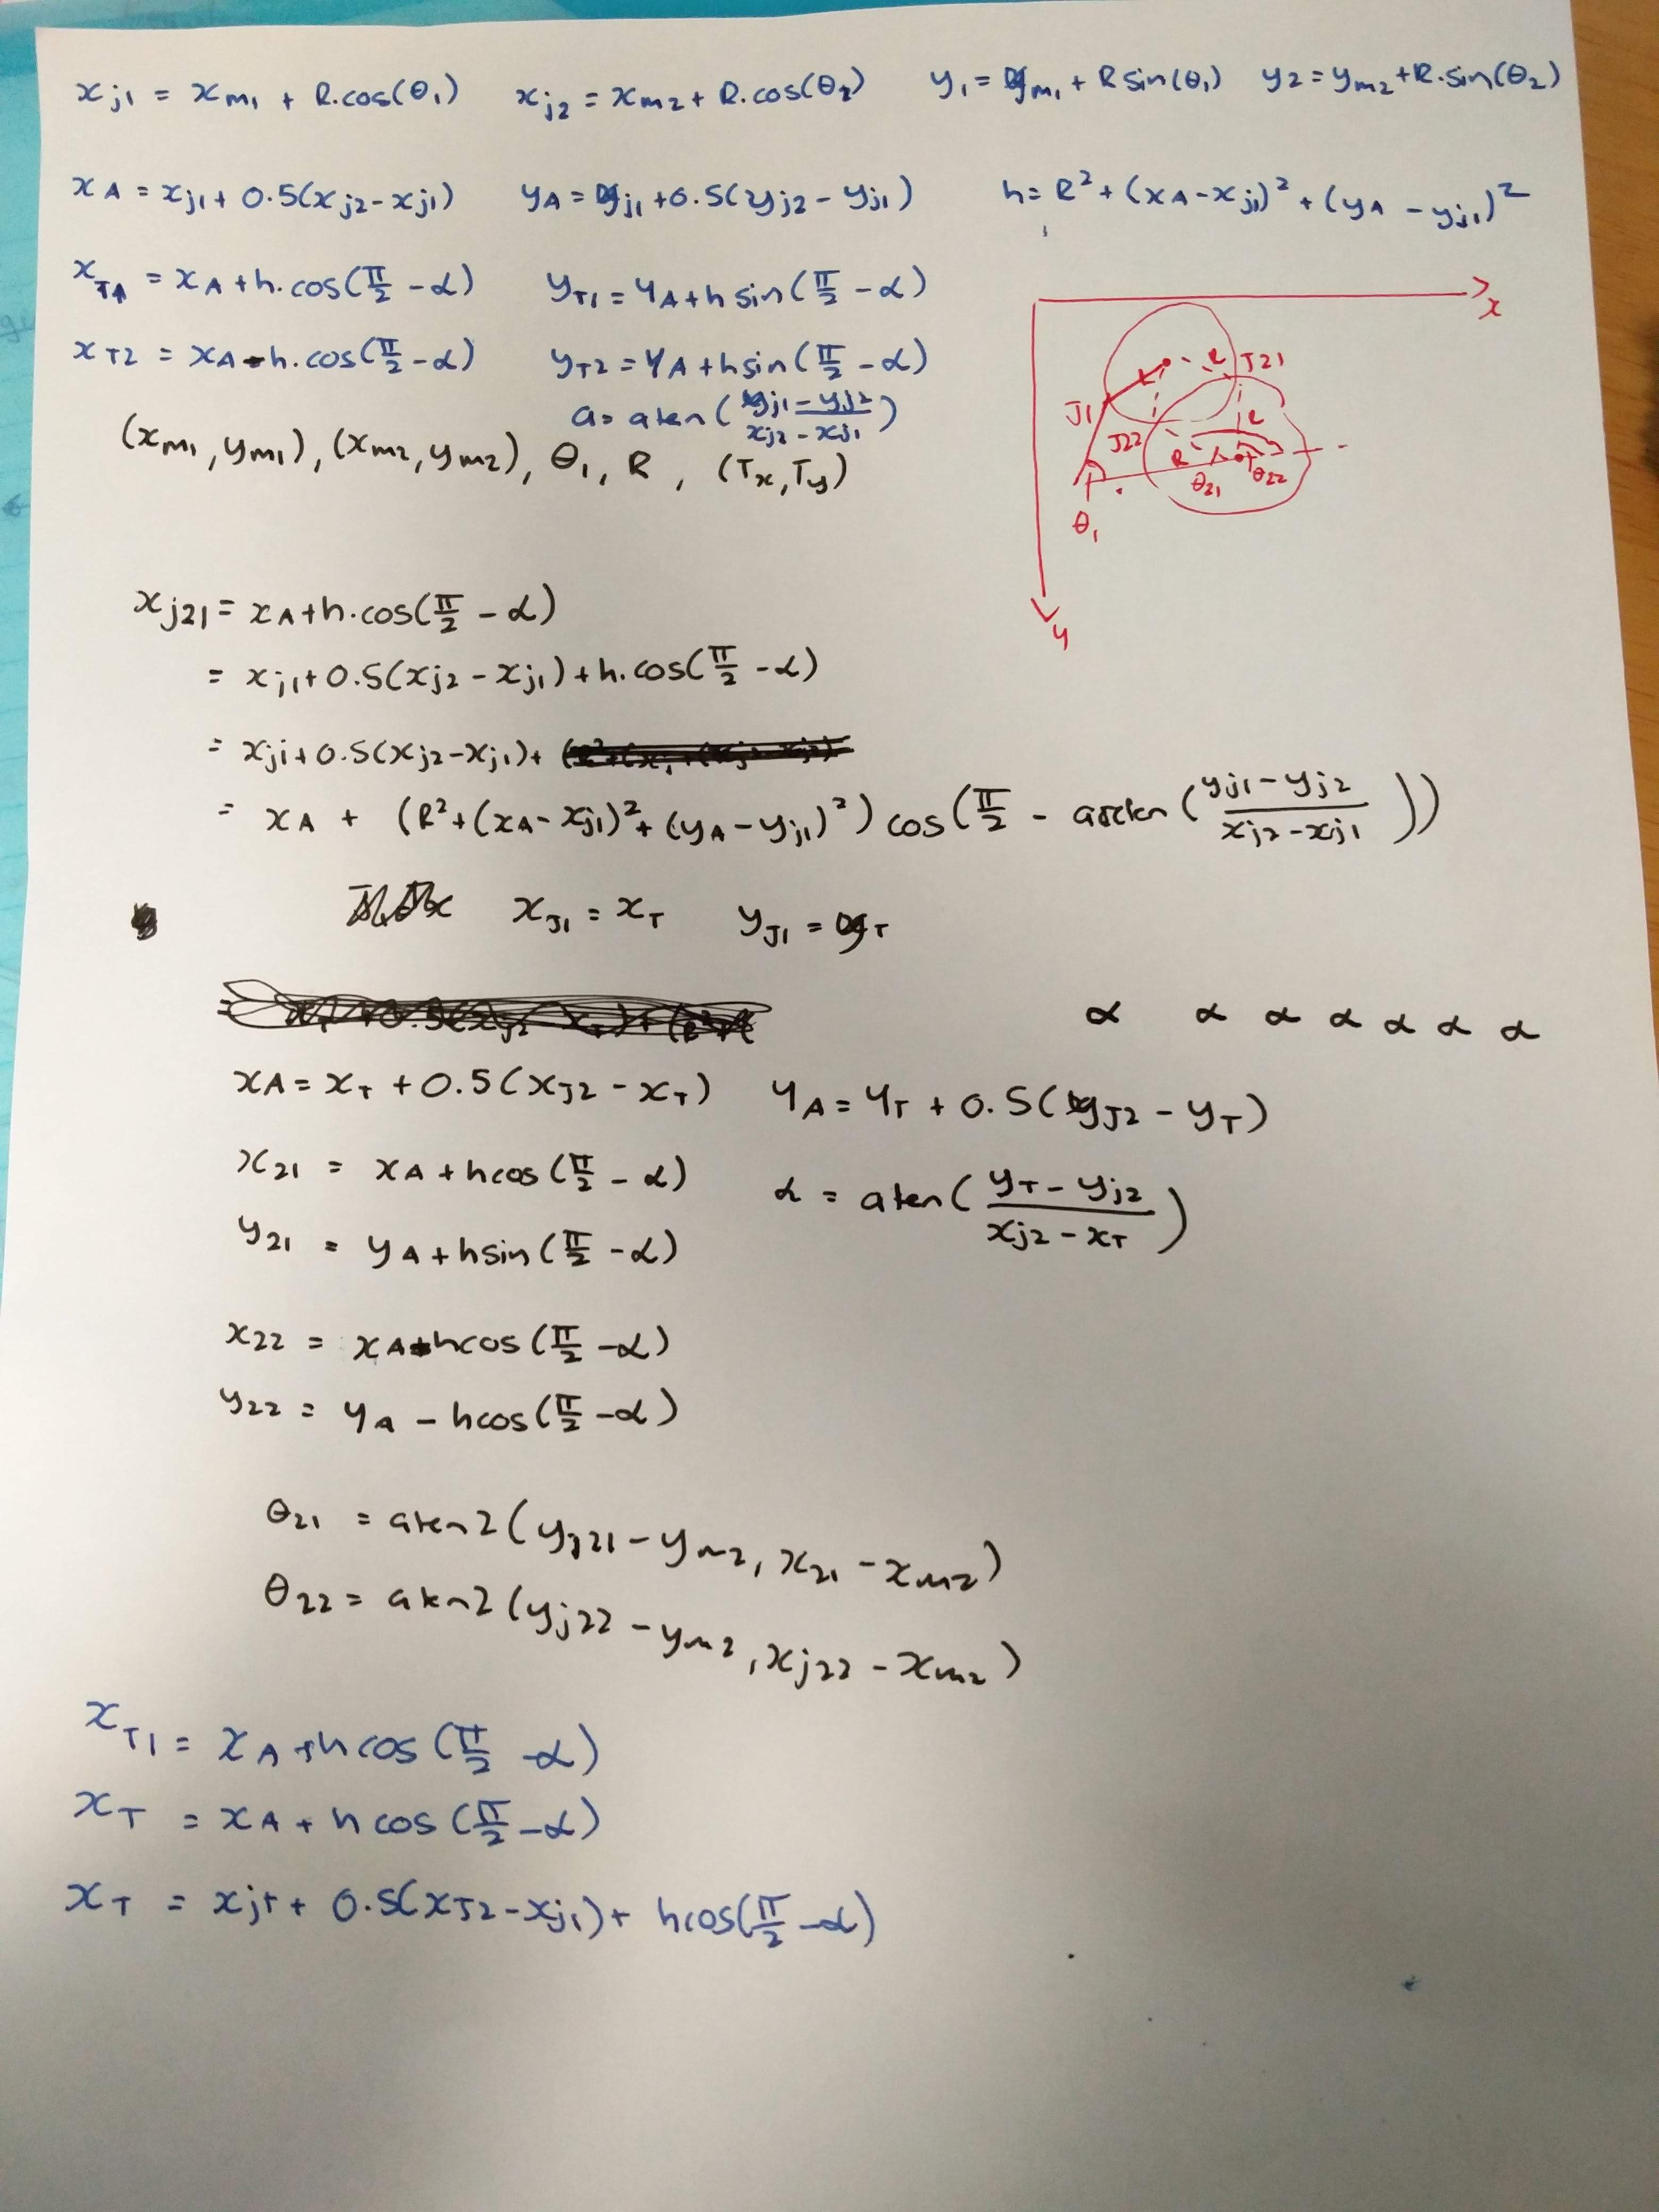 x_{j1} = x_{m1} + R.cos(θ_1)  x_{j2} = x_{m2} + R.cos(θ_2)  y_1 = y_{m1} + R sin(θ_1)  y_2 = y_{m2} + R.sin(θ_2)
x_A = x_{j1} + 0.5(x_{j2} - x_{j1})  y_A = y_{j1} + 0.5(y_{j2} - y_{j1})  h = R^2 + (x_A - x_{j1})^2 + (y_A - y_{j1})^2
x_{T1} = x_A + h.cos(π/2 - α)  y_{T1} = y_A + h sin(π/2 - α)
x_{T2} = x_A - h.cos(π/2 - α)  y_{T2} = y_A + h sin(π/2 - α)
a = atan((y_{j1} - y_{j2})/(x_{j2} - x_{j1}))
(x_{m1}, y_{m1}), (x_{m2}, y_{m2}), θ_1, R, (T_x, T_y)
x
R J21
J1
J22 R
R T
θ_{21} θ_{22}
θ_1
y
x_{j21} = x_A + h.cos(π/2 - α)
= x_{j1} + 0.5(x_{j2} - x_{j1}) + h.cos(π/2 - α)
= x_{j1} + 0.5(x_{j2} - x_{j1}) +
= x_A + (R^2 + (x_A - x_{j1})^2 + (y_A - y_{j1})^2) cos(π/2 - arctan((y_{j1} - y_{j2})/(x_{j2} - x_{j1})))
x_{J1} = x_T  y_{J1} = y_T
α α α α α α α
x_A = x_T + 0.5(x_{J2} - x_T)  y_A = y_T + 0.5(y_{J2} - y_T)
x_{21} = x_A + h cos(π/2 - α)  α = atan((y_T - y_{j2})/(x_{j2} - x_T))
y_{21} = y_A + h sin(π/2 - α)
x_{22} = x_A + h cos(π/2 - α)
y_{22} = y_A - h cos(π/2 - α)
θ_{21} = atan2(y_{j21} - y_{m2}, x_{21} - x_{m2})
θ_{22} = atan2(y_{j22} - y_{m2}, x_{j22} - x_{m2})
x_{T1} = x_A + h cos(π/2 - α)
x_T = x_A + h cos(π/2 - α)
x_T = x_{j1} + 0.5(x_{J2} - x_{j1}) + h cos(π/2 - α)